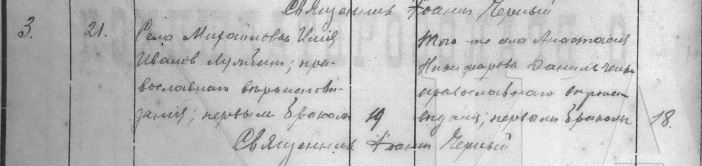 Священникъ Іоаннъ Черный
3. 21. Села Михайловки Илія
Иванов ; пра-
вославнаго вѣроиспове-
данія; первымъ бракомъ 19
Того-же села Анастасія
Никифорова Данильченко
православнаго вѣроис-
вѣданія; первымъ бракомъ 18.
Священникъ Іоаннъ Черный